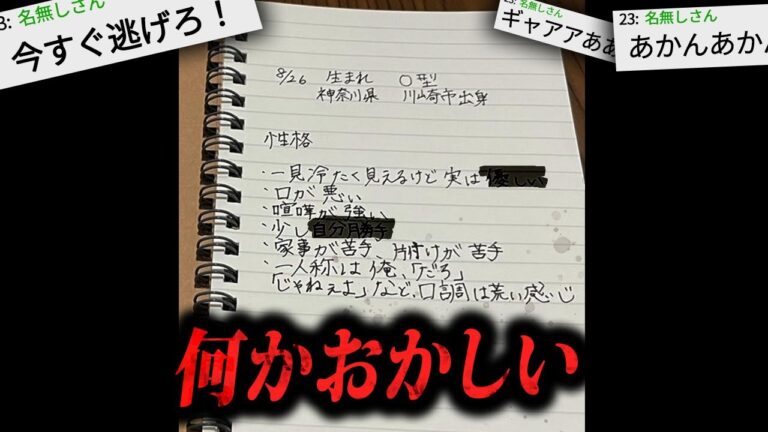 3: 名無しさん
今すぐ逃げろ！
23: 名無しさん
ギャアアああ
23: 名無しさん
あかんあかん
8/26 生まれ 〇型
神奈川県 川崎市出身
性格
・一見冷たく見えるけど実は優しい
・口が悪い
・喧嘩が強い
・少し自分勝手
・家事が苦手、片付けが苦手
・一人称は俺、「だろ」
「じゃねぇよ」など、口調は荒い感じ
何かおかしい